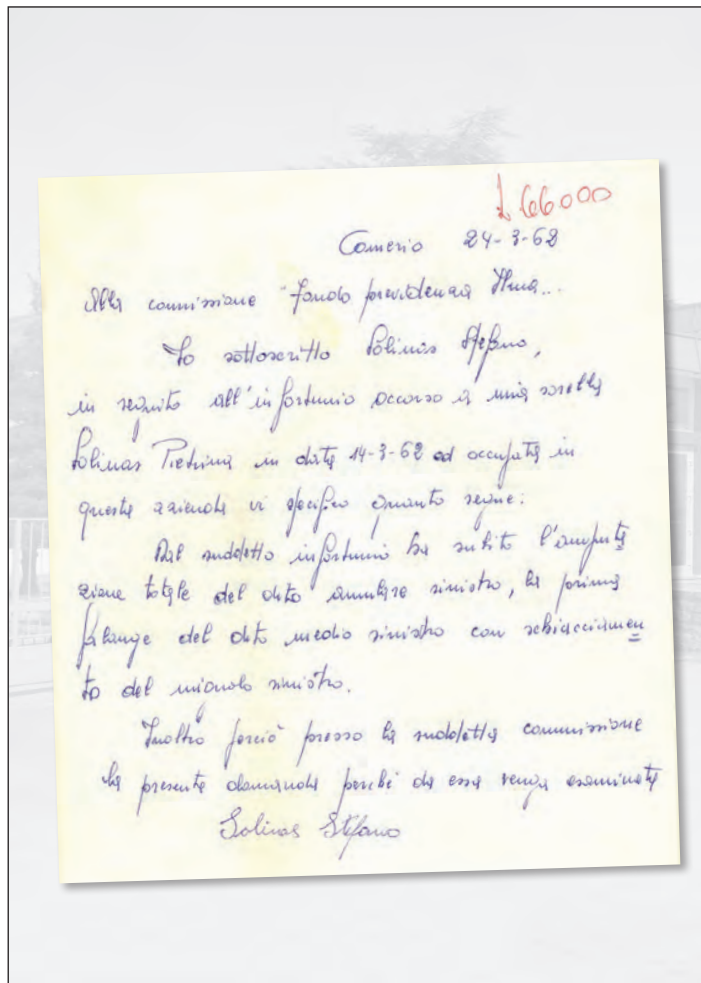 £ 66000
Comerio 24-3-62
Alla commissione "fondo previdenza Ilma...
Io sottoscritto Solinas Stefano,
in seguito all'infortunio occorso a mia sorella
Solinas Pietrina in data 14-3-62 ed occupata in
questa azienda vi specifico quanto segue:
Dal suddetto infortunio ha subito l'amputa
zione totale del dito anulare sinistro, la prima
falange del dito medio sinistro con schiacciamen
to del mignolo sinistro.
Inoltro perciò presso la suddetta commissione
la presente domanda perché da essa venga esaminata
Solinas Stefano